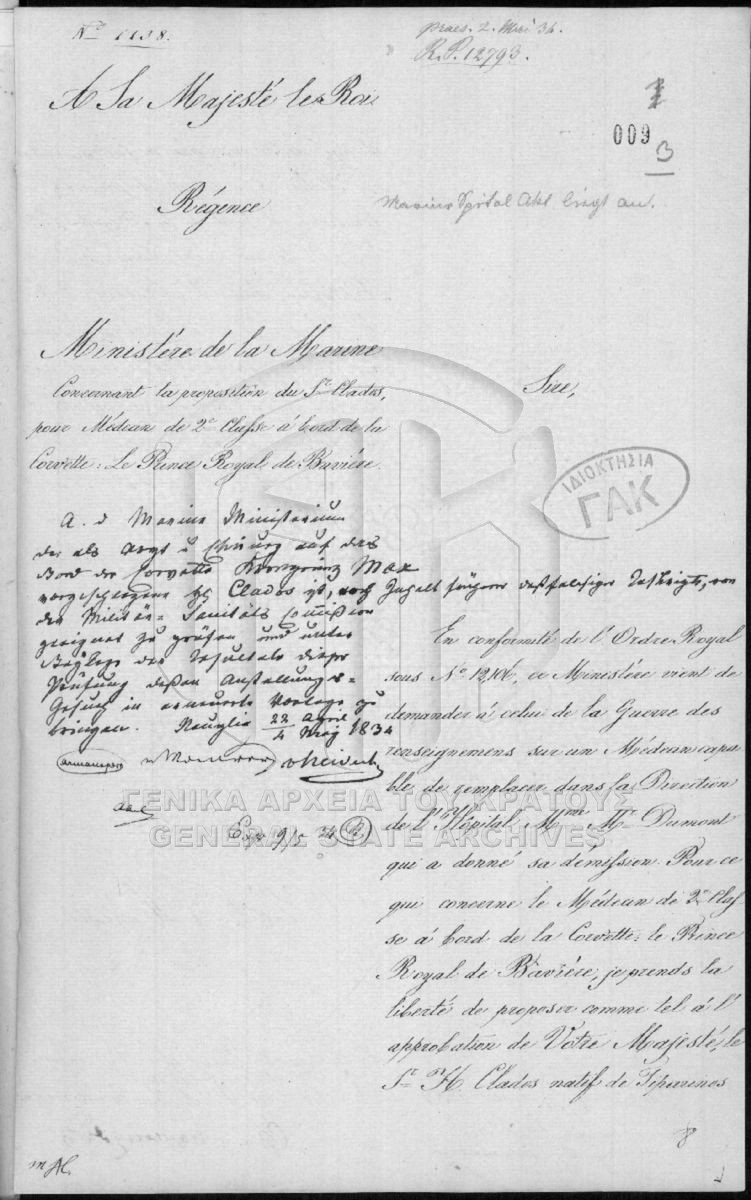 No 1138.
praes. 2. Mai 34.
R.P. 12793.
A Sa Majesté le Roi
009
3
Régence
Marine Spital Akt liegt an.
Ministère de la Marine
Concernant la proposition du Sr Clados,
pour Médecin de 2e Classe à bord de la
Corvette: Le Prince Royal de Bavière.
Sire,
ΙΔΙΟΚΤΗΣΙΑ
ΓΑΚ
A. d Marine Ministerium
der als Arzt u Chirurg auf das
Bord der Corvette Kronprinz Max
vorgeschlagene H. Clados ist, nach Inhalt früherer deßfalsiger Inschrift, von
der Militär-Sanitäts Comission
geeignet zu prüfen und unter
Beylage der Resultate dieser
Prüfung dessen Anstellungs-
Gesuch in erneuerte Vorlage zu
bringen. Nauplia 22 April / 4 May 1834
Armansperg v Maurer v Heideck
Abel
Exp 9/5 34
En conformité de l'Ordre Royal
sous No , ce Ministère vient de
demander à celui de la Guerre des
renseignemens sur un Médecin capa
ble de remplacer dans la Direction
de l'Hôpital Mme Mr Dumont
qui a donné sa demission. Pour ce
qui concerne le Médecin de 2e Clas
se à bord de la Corvette: le Prince
Royal de Bavière, je prends la
liberté de proposer comme tel à l'
approbation de Votre Majesté, le
Sr H. Clados natif de
ΓΕΝΙΚΑ ΑΡΧΕΙΑ ΤΟΥ ΚΡΑΤΟΥΣ
GENERAL STATE ARCHIVES